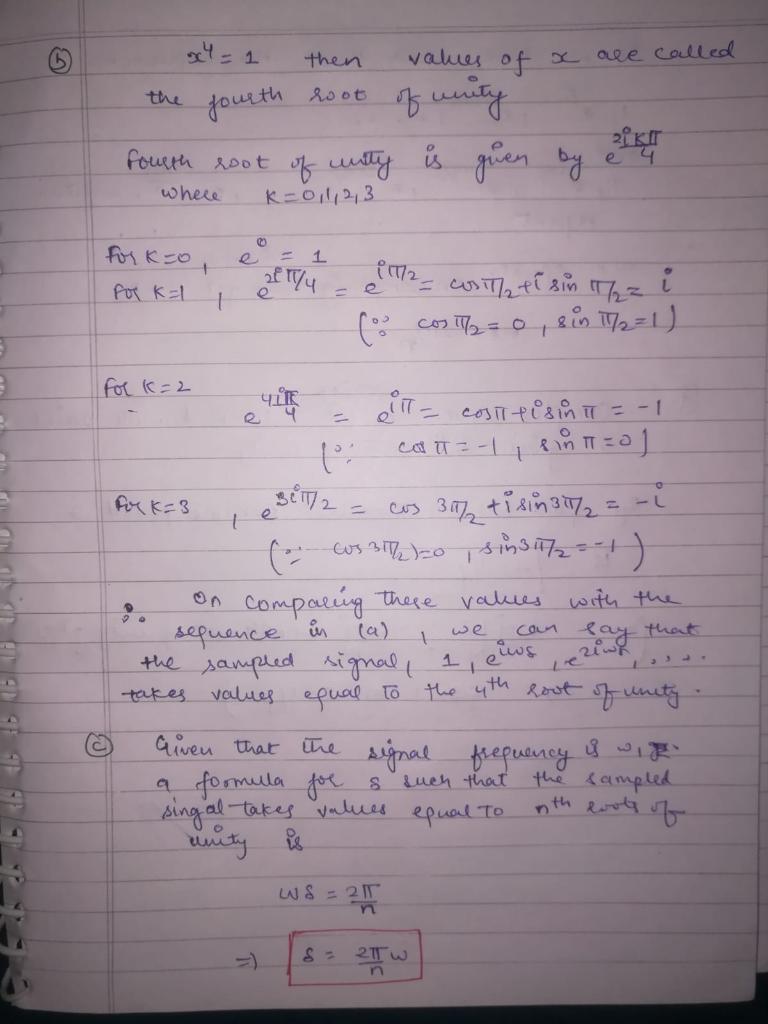 (b) x⁴ = 1 then values of x are called
the fourth root of unity
Fourth root of unity is given by e^(2ikπ/4)
where K = 0,1,2,3
For K=0, e⁰ = 1
For K=1, e^(2iπ/4) = e^(iπ/2) = cosπ/2 + i sin π/2 = i
(∵ cosπ/2 = 0, sin π/2 = 1)
For K=2
e^(4iπ/4) = e^(iπ) = cosπ + i sin π = -1
(∵ cos π = -1, sin π = 0)
For K=3, e^(3iπ/2) = cos 3π/2 + i sin 3π/2 = -i
(∵ cos 3π/2) = 0, sin3π/2 = -1)
∴ On comparing these values with the
sequence in (a), we can say that
the sampled signal, 1, e^(iωs), e^(2iωs), ....
takes values equal to the 4th root of unity.
(c) Given that the signal frequency is ω,
a formula for s such that the sampled
singal takes values equal to nth roots of
unity is
ωs = 2π/n
⇒ s = 2π/n ω